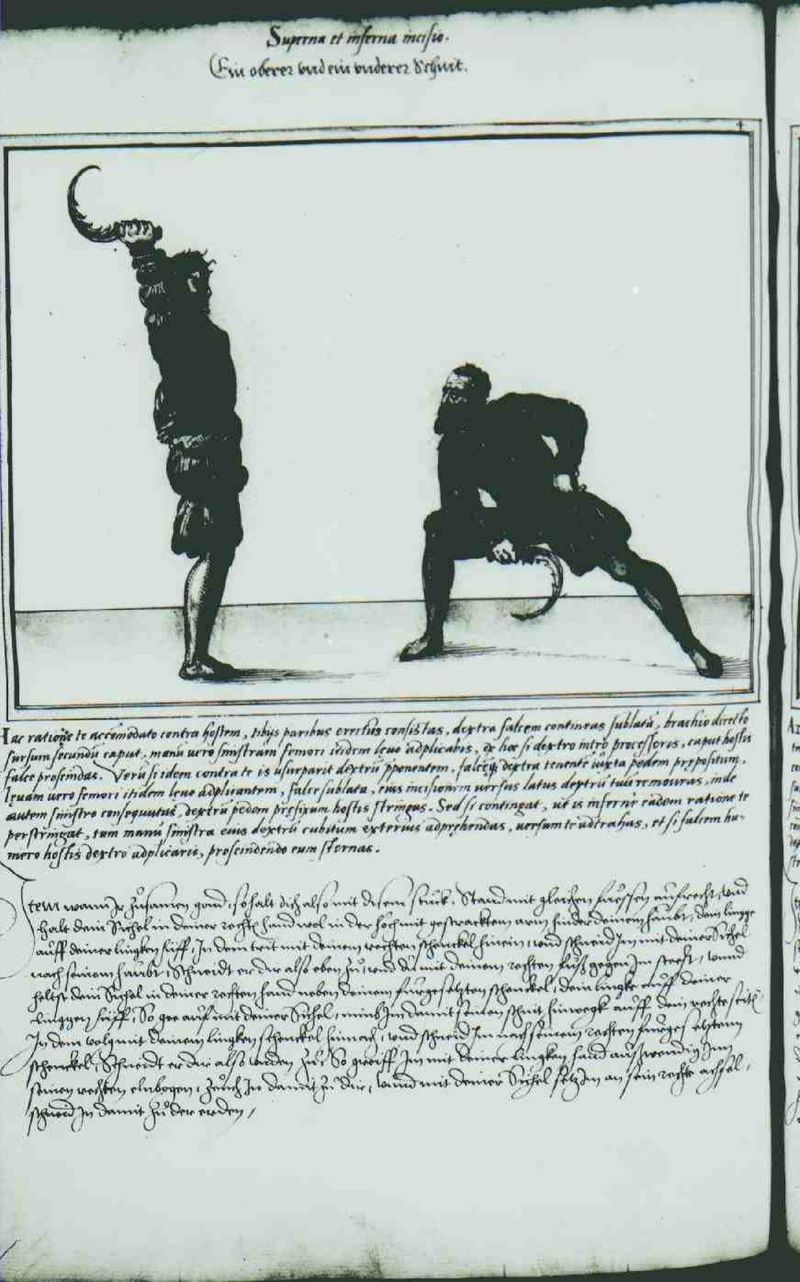 Superna et inferna incisio.
Ein oberer und ein underer Schnit.
Hac ratione te accomodato contra hostem, tibijs paribus erectus consistas, dextra falcem contineas sublatā, brachio directo
sursum secundū caput, manū vero sinistram femori itidem levo adplicabis, ex hoc si dextro intro processeris, caput hostis
falce proscindas. Verū si idem contra te is usurparit dextrū pponentem, falceq dextra tenente iuxta pedem prepositum,
levam vero femori itidem levo adplicantem, falce sublata, eius incisionem versus latus dextrū tuū removeas, inde
autem sinistro consequutus, dextrū pedem prefixum hostis stringas. Sed si contingat, ut is inferne eadem ratione te
perstringat, tum manū sinistra eius dextrū cubitum exterius adprehendas, versum te adtrahas, et si falcem hu-
mero hostis dextro adplicaris, proscindendo eum sternas.
Item wann Ir zusamen gond, so halt dich also mit disem stuck, Stand mit gleichen fuossen aufrecht, und
halt dein Sichel in deiner rechten hand wol in der hoch mit gestracktem arm hinder deinem haubt, dein lingge
auff deiner lingken huff, In dem trit mit deinem rechten schenckel hinein, und schneid Im mit deiner Sichel
nach seinem haubt, Schneidt er dir also oben zu, und du mit deinem rechten fuß gegen Im steest, unnd
heltst dein Sichel in deiner rechten hand neben deinem furgesetzten schenckel, dein lingke auff deiner
linggen huff, So gee auf mit deiner Sichel, nimb Im damit seinen schnit hinwegk auff dein rechte seiten
In dem volg mit deinem lingken schenckel hinnach, und schneid Im nach seinem rechten furgesetztem
schenckel, Schneidt er dir also unden zu, So greiff Im mit deiner lingken hand auswendig Inn
seinen rechten elnbogen, zeuch In damit zu dir, unnd mit deiner Sichel setz Im an sein rechte achsel,
schneid In damit zu der erden,